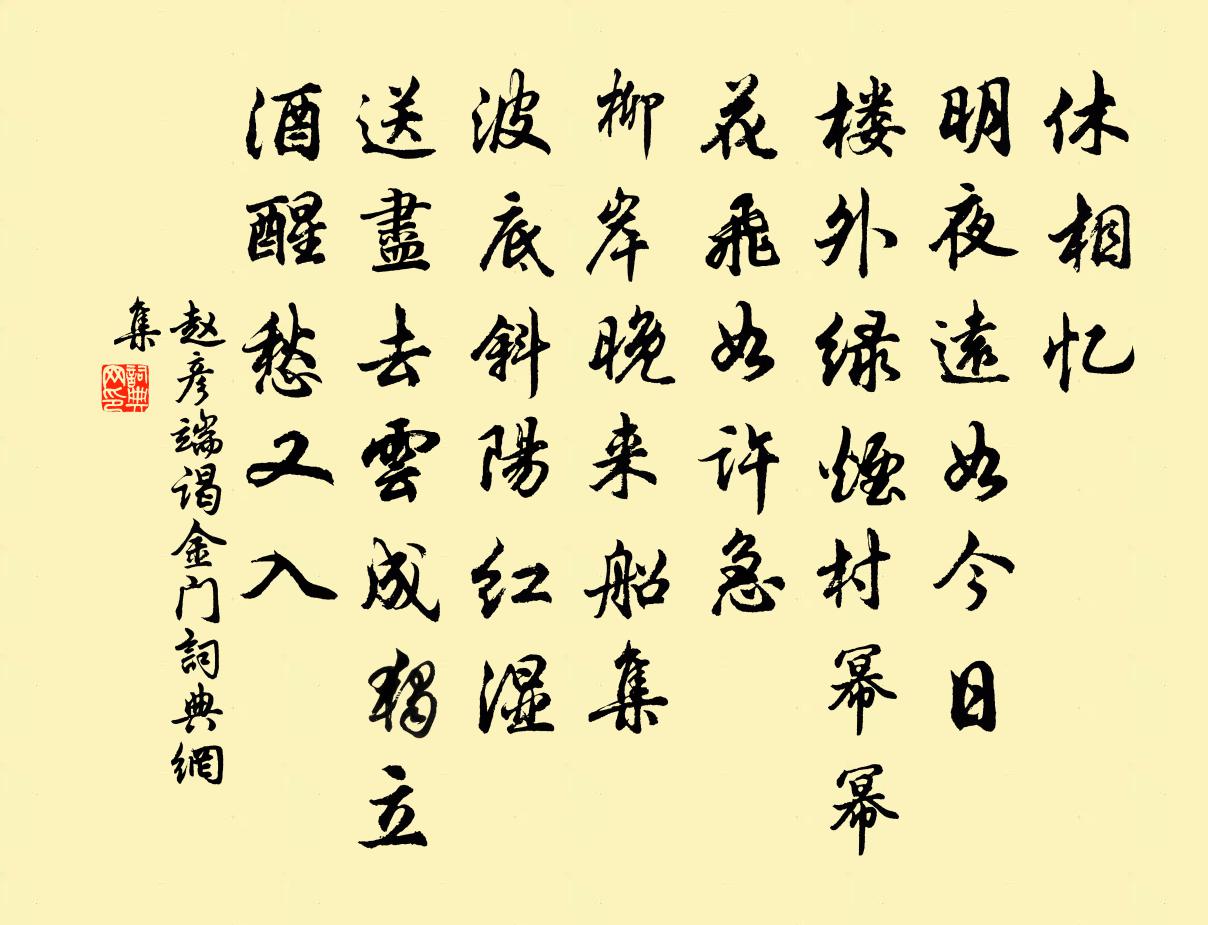 休相忆
明夜遠如今日
楼外绿煙村幂幂
花飛如许急
柳岸晚来船集
波底斜陽红湿
送盡去雲成獨立
酒醒愁又入
赵彦端谒金门詞典網
集
詞典
网印